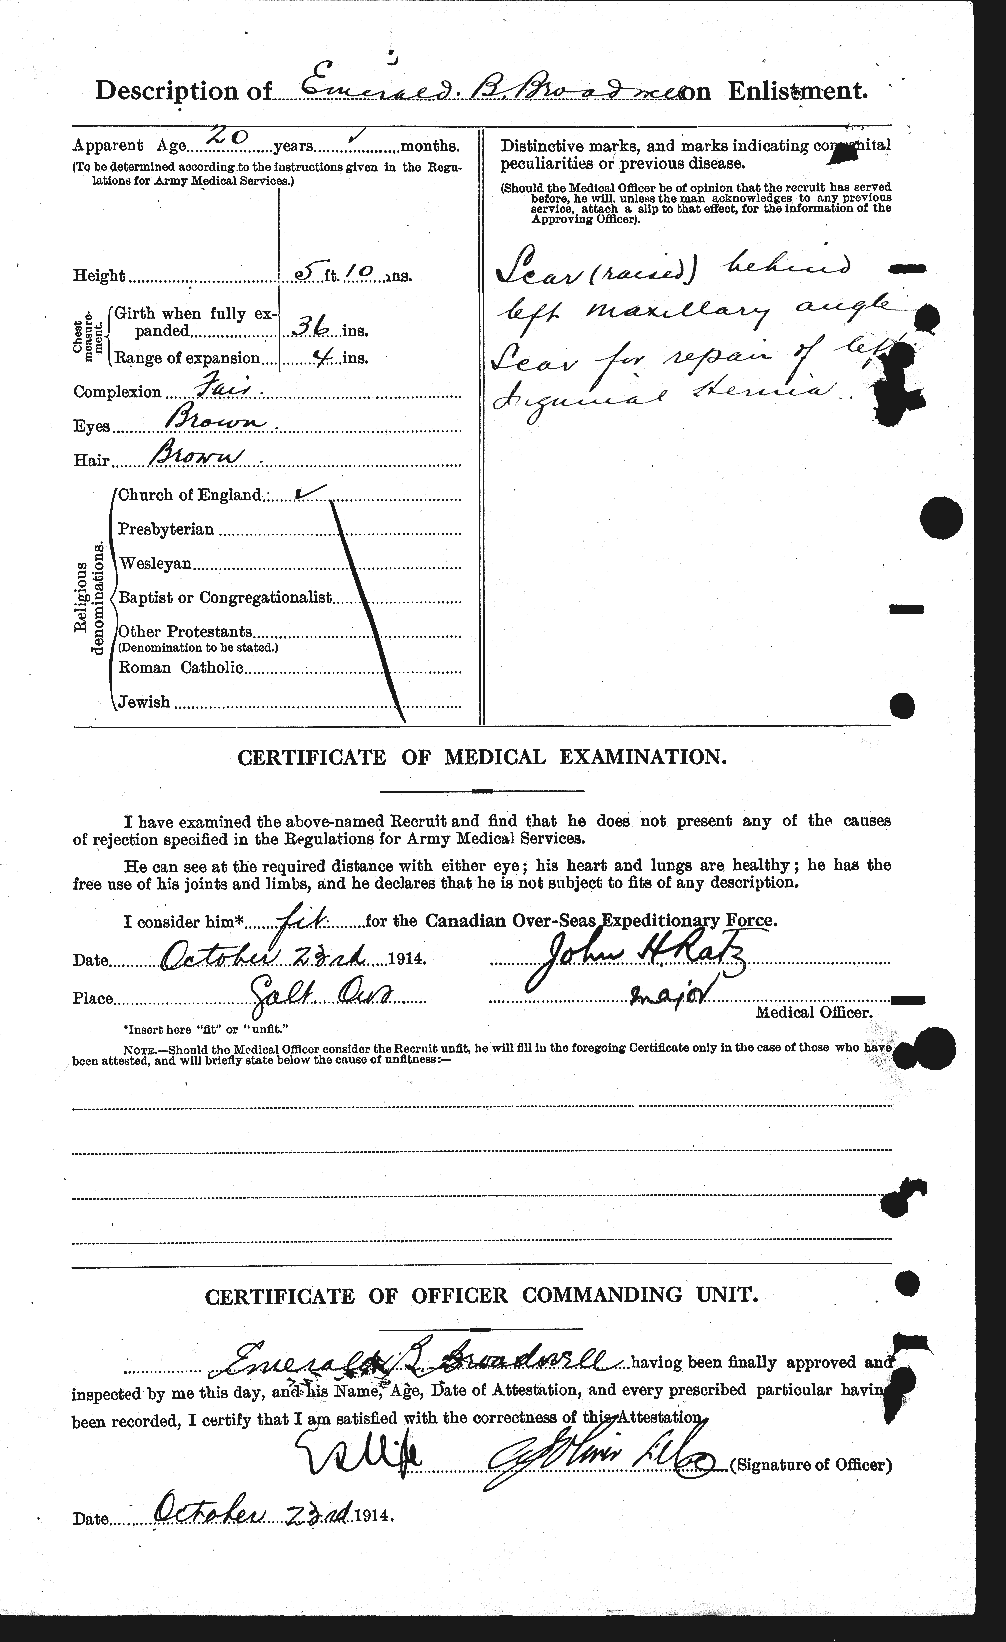 Description of Emerald. B. Broadwell on Enlistment.
Apparent Age 20 years months.
(To be determined according to the instructions given in the Regu-
lations for Army Medical Services.)
Height 5 ft. 10 ins.
Chest measure-ment.
Girth when fully ex-
panded 36 ins.
Range of expansion 4 ins.
Complexion Fair.
Eyes Brown.
Hair Brown.
Religious denominations.
Church of England ✓
Presbyterian
Wesleyan
Baptist or Congregationalist
Other Protestants
(Denomination to be stated.)
Roman Catholic
Jewish
Distinctive marks, and marks indicating congenital
peculiarities or previous disease.
(Should the Medical Officer be of opinion that the recruit has served
before, he will, unless the man acknowledges to any previous
service, attach a slip to that effect, for the information of the
Approving Officer).
Scar (raised) behind
left maxillary angle
Scar for repair of left
Inguinial Hernia.
CERTIFICATE OF MEDICAL EXAMINATION.
I have examined the above-named Recruit and find that he does not present any of the causes
of rejection specified in the Regulations for Army Medical Services.
He can see at the required distance with either eye; his heart and lungs are healthy; he has the
free use of his joints and limbs, and he declares that he is not subject to fits of any description.
I consider him* fit for the Canadian Over-Seas Expeditionary Force.
Date October 23rd 1914. John H. Ratz
Place Galt Ont major
Medical Officer.
*Insert here "fit" or "unfit."
NOTE.—Should the Medical Officer consider the Recruit unfit, he will fill in the foregoing Certificate only in the case of those who have
been attested, and will briefly state below the cause of unfitness:—
CERTIFICATE OF OFFICER COMMANDING UNIT.
Emerald B Broadwell having been finally approved and
inspected by me this day, and his Name, Age, Date of Attestation, and every prescribed particular having
been recorded, I certify that I am satisfied with the correctness of this Attestation.
(Signature of Officer)
Date October 23rd 1914.